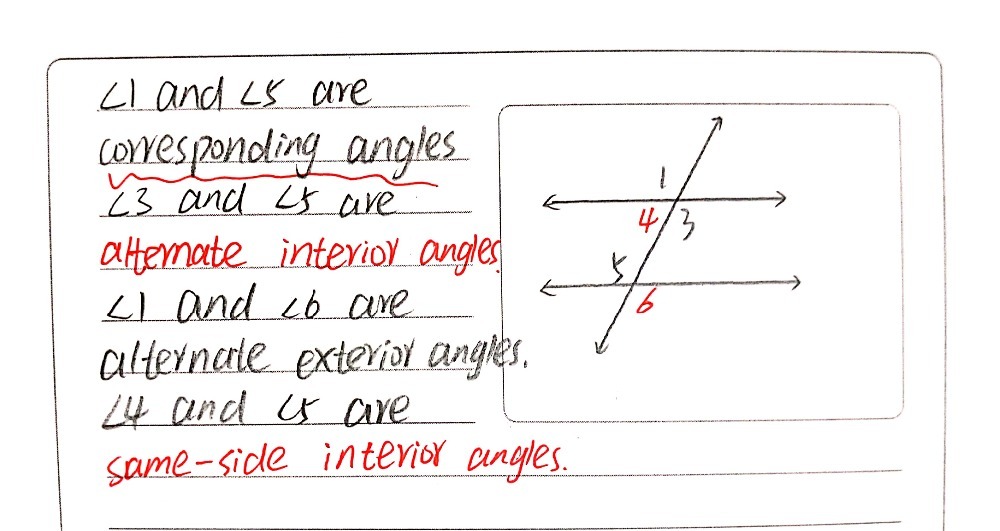 ∠1 and ∠5 are
corresponding angles
∠3 and ∠5 are
alternate interior angles.
∠1 and ∠6 are
alternate exterior angles.
∠4 and ∠5 are
same-side interior angles.
1
4 3
5
6